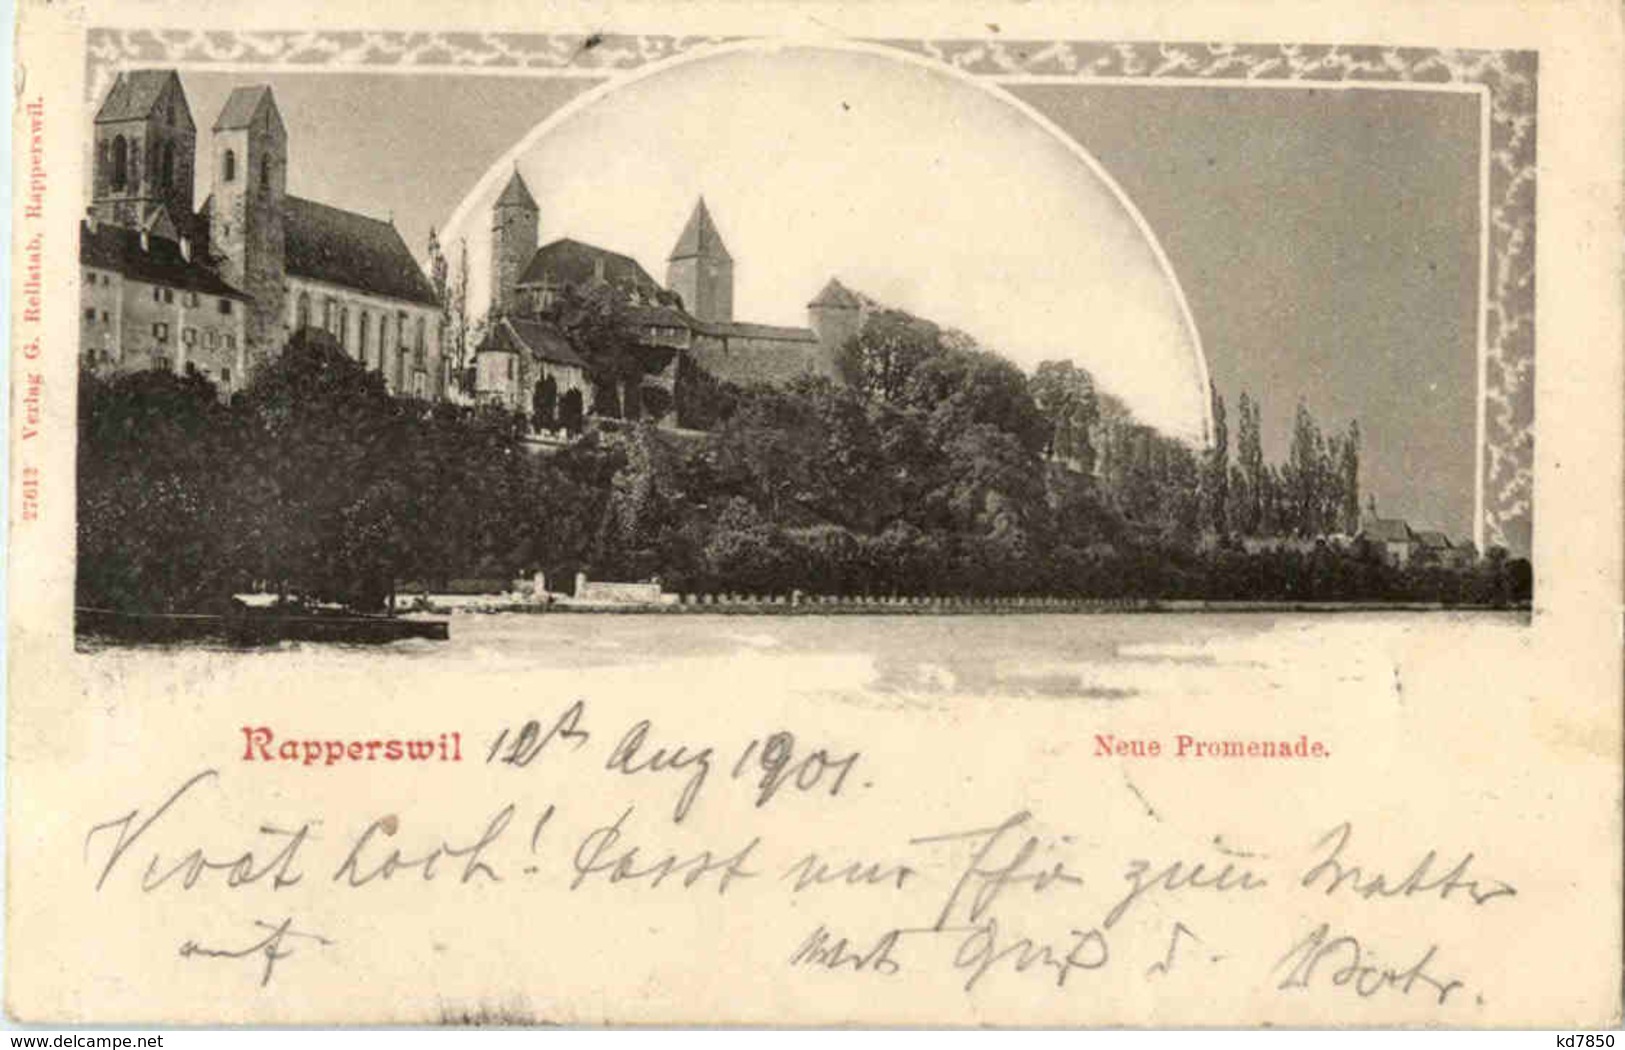 27612 Verlag G. Rellstab, Rapperswil.
Rapperswil 12t Aug 1901.
Neue Promenade.
Vivat hoch! Passt nur zum
auf mit Gruß
delcampe.net
kd7850